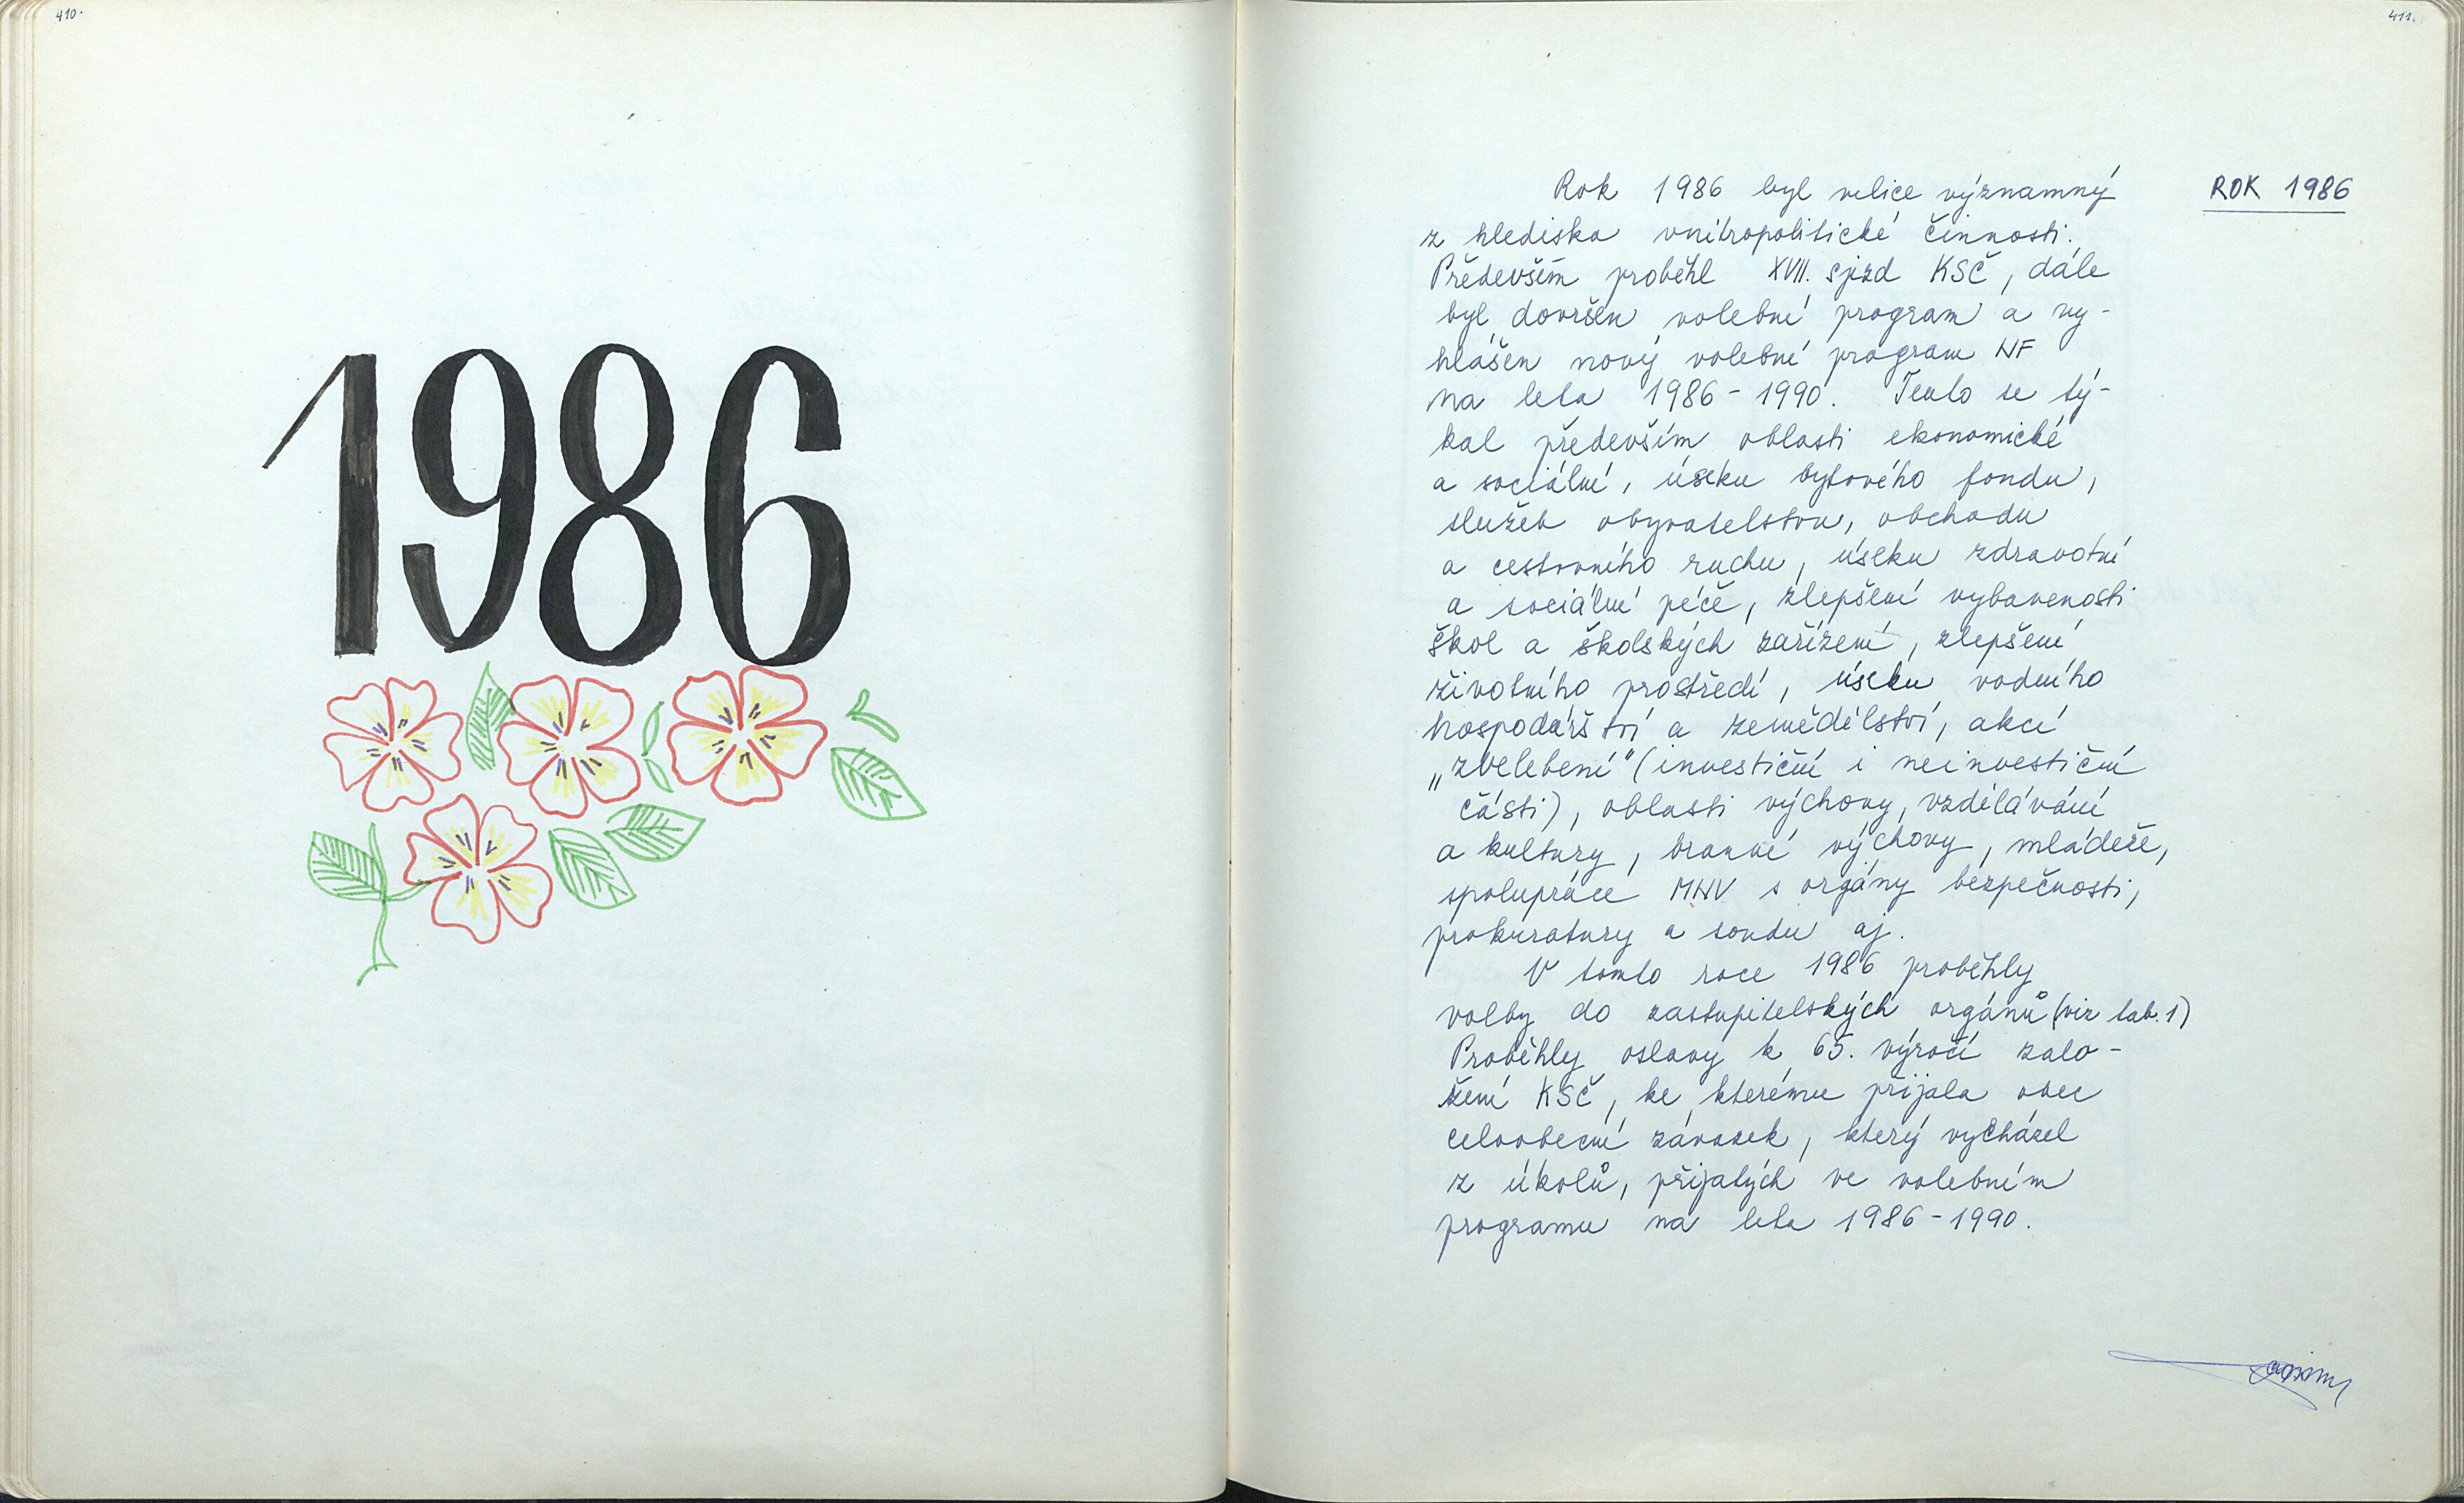 410.
1986
411.
ROK 1986
Rok 1986 byl velice významný
z hlediska vnitropolitické činnosti.
Především proběhl XVII. sjezd KSČ, dále
byl dovršen volební program a vy-
hlášen nový volební program NF
na léta 1986-1990. Tento se tý-
kal především oblasti ekonomické
a sociální, úseku bytového fondu,
služeb obyvatelstvu, obchodu
a cestovního ruchu, úseku zdravotní
a sociální péče, zlepšení vybavenosti
škol a školských zařízení, zlepšení
životního prostředí, úseku vodního
hospodářství a zemědělství, akcí
„zvelebení" (investiční i neinvestiční
části), oblasti výchovy, vzdělávání
a kultury, branné výchovy, mládeže,
spolupráce MNV s orgány bezpečnosti,
prokuratury a soudu aj.
V tomto roce 1986 proběhly
volby do zastupitelských orgánů (viz tab. 1)
Proběhly oslavy k 65. výročí zalo-
žení KSČ, ke kterému přijala obec
celoobecní závazek, který vycházel
z úkolů, přijatých ve volebním
programu na léta 1986-1990.